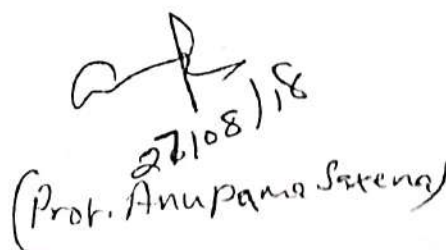 27/08/18
(Prof. Anupama Saxena)